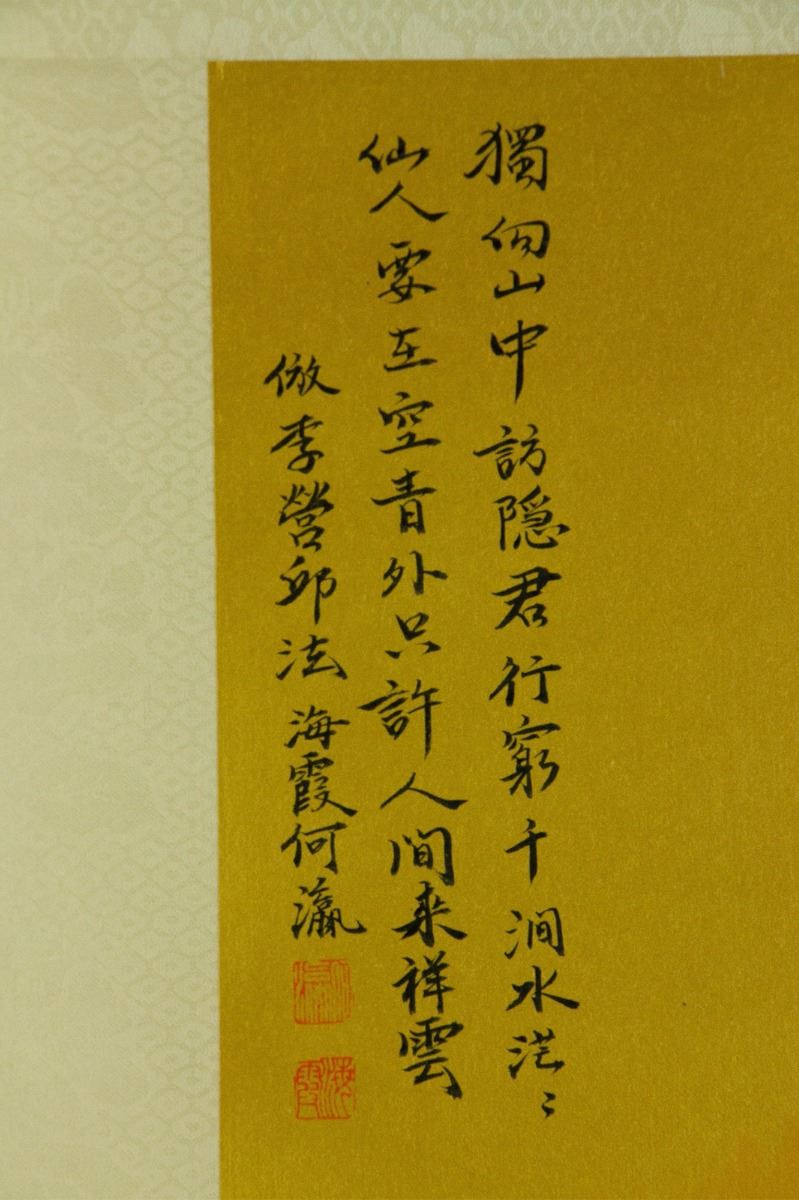 獨向山中訪隱君行窮千澗水茫〻
仙人要在空青外只許人間來祥雲
倣李營邱法 海霞何瀛
海霞